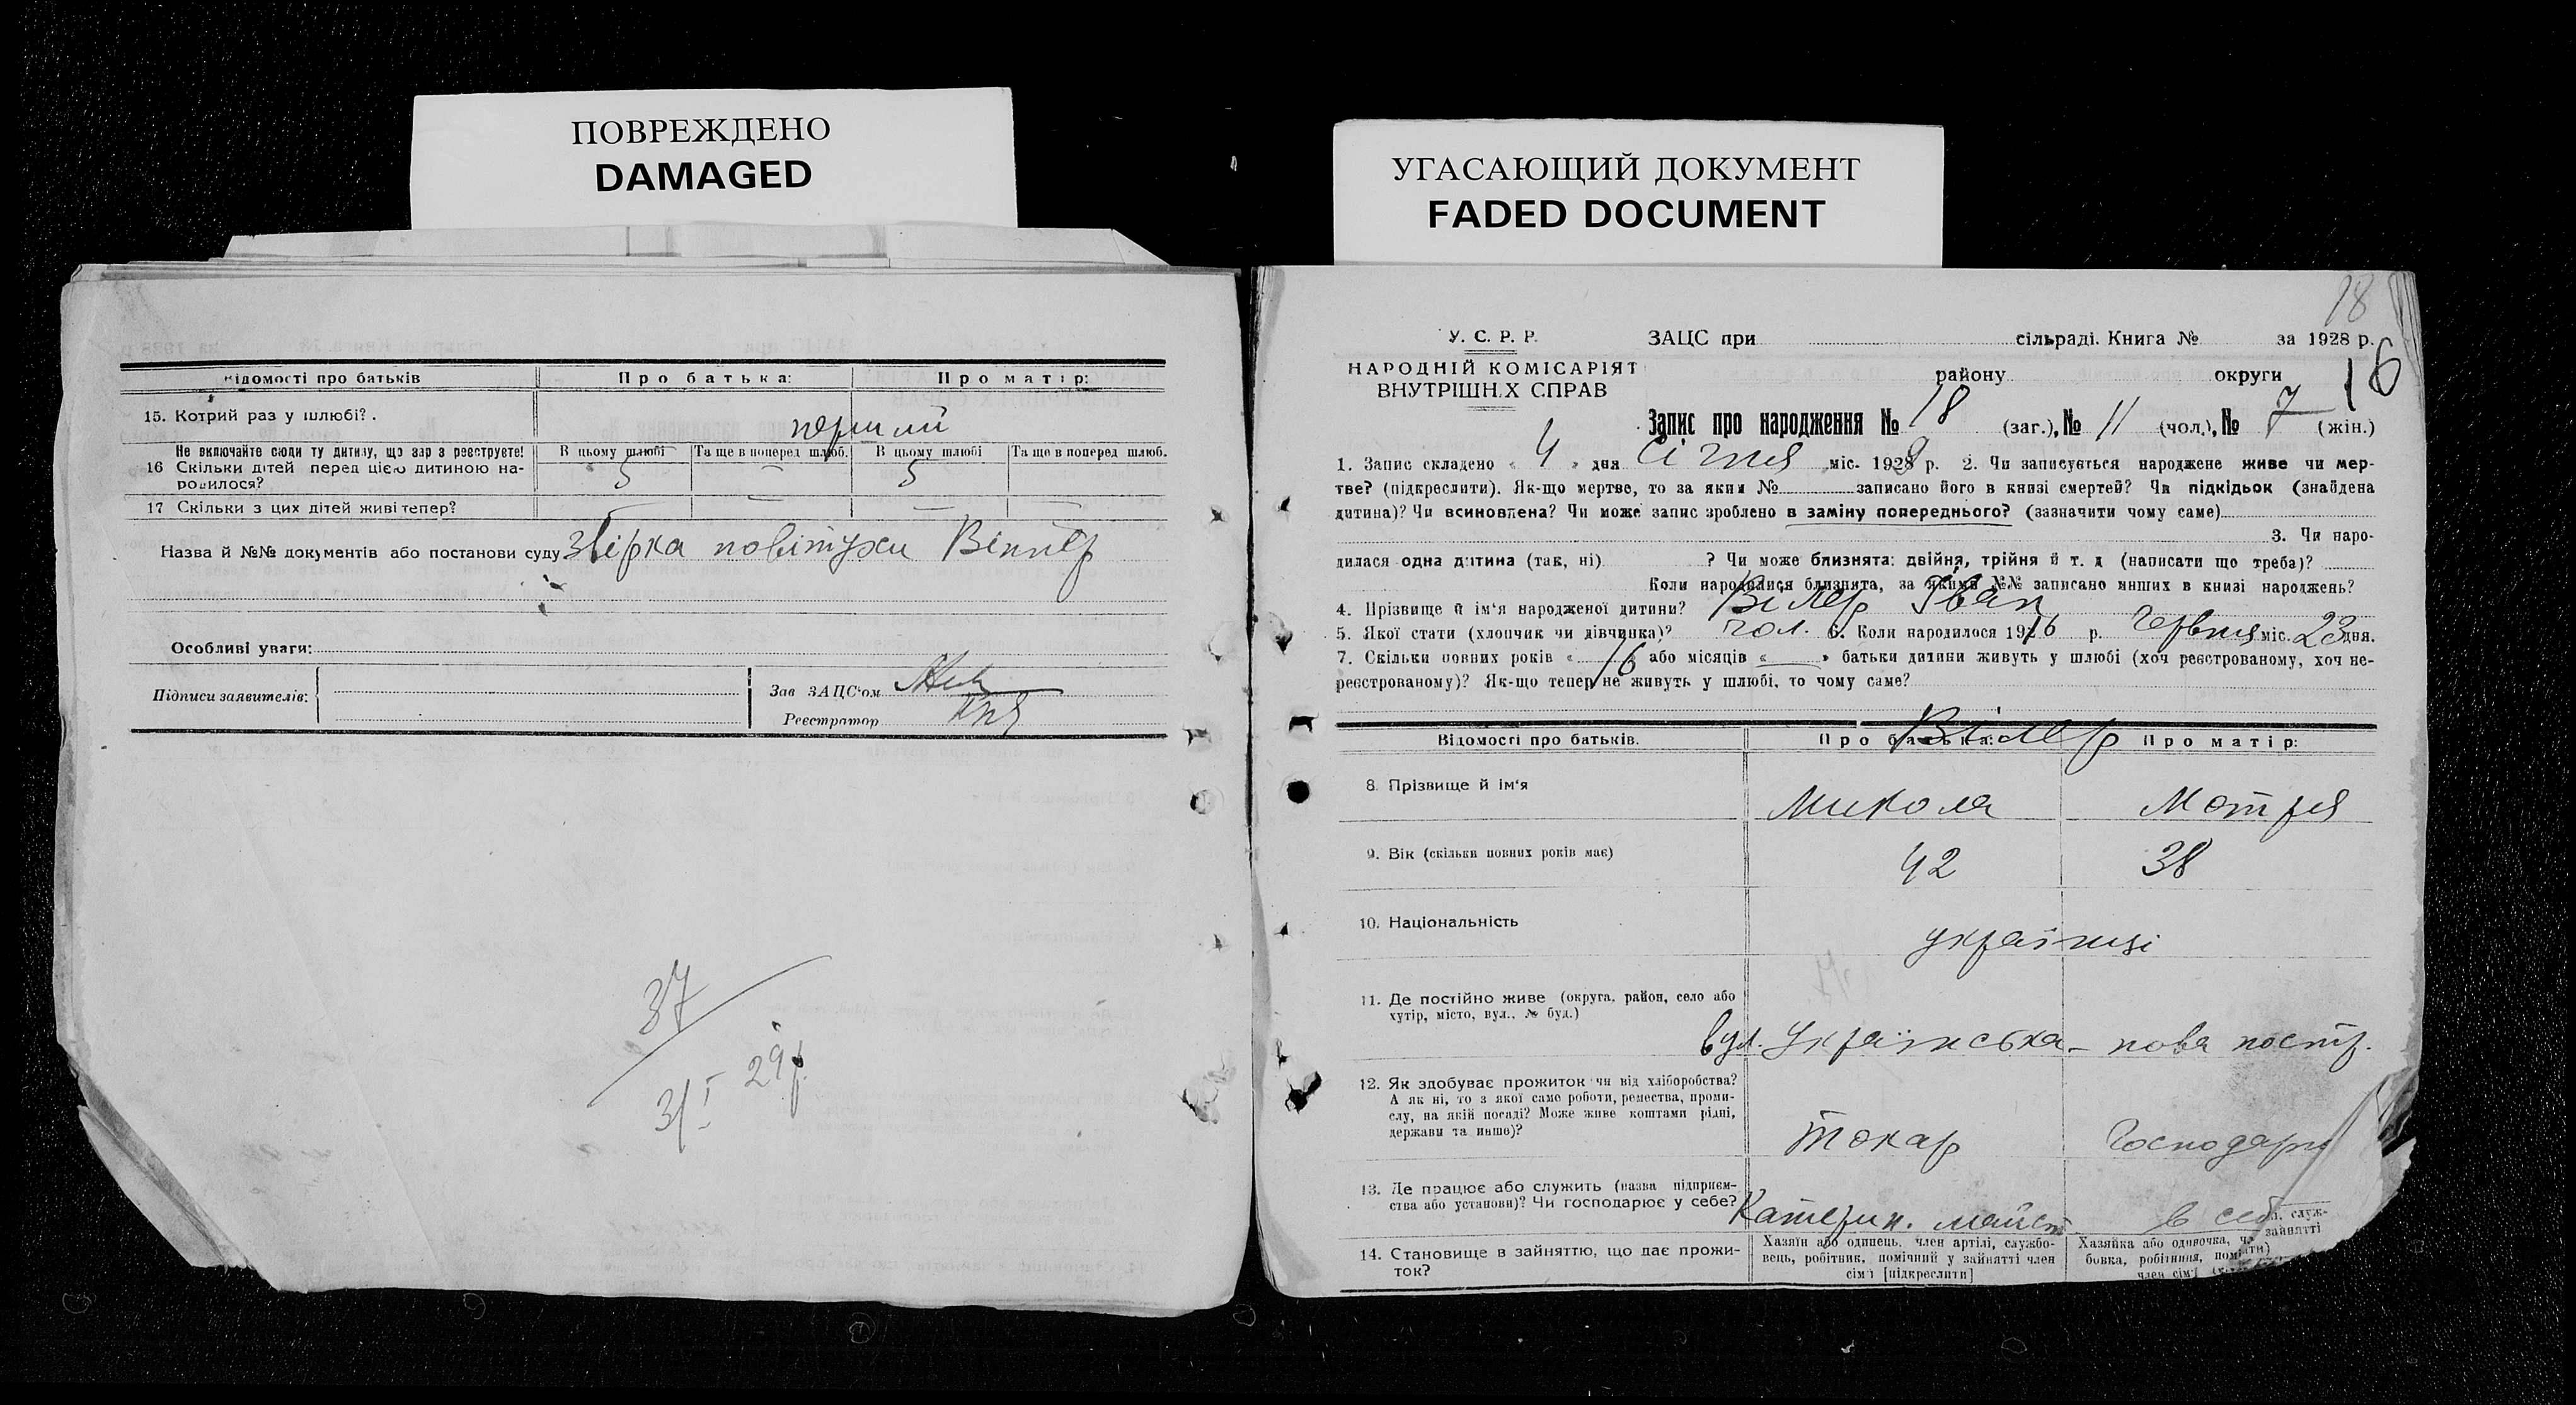 ПОВРЕЖДЕНО
DAMAGED
УГАСАЮЩИЙ ДОКУМЕНТ
FADED DOCUMENT
Відомості про батьків
Про батька:
Про матір:
15. Котрий раз у шлюбі?.
перший
Не включайте сюди ту дитину, що зар з реєструєте!
16 Скільки дітей перед цією дитиною на-
родилося?
В цьому шлюбі
Та ще в поперед шлюб.
В цьому шлюбі
Та ще в поперед шлюб.
5 — 5
17 Скільки з цих дітей живі тепер?
— — —
Назва й №№ документів або постанови суду
повітухи
Особливі уваги:
Підписи заявителів:
Зав ЗАЦС'ом
Реєстратор
37
31/I 29р
18
У. С. Р. Р.
НАРОДНІЙ КОМІСАРІЯТ
ВНУТРІШН.Х СПРАВ
ЗАЦС при сільраді. Книга № за 1928 р.
району округи
16
Запис про народження № 18 (заг.), № 11 (чол.), № 7 (жін.)
1. Запис складено « 4 » дня Січня міс. 1929 р. 2. Чи записується народжене живе чи мер-
тве? (підкреслити). Як-що мертве, то за яким № записано його в книзі смертей? Чи підкідьок (знайдена
дитина)? Чи всиновлена? Чи може запис зроблено в заміну попереднього? (зазначити чому саме)
3. Чи наро-
дилася одна дитина (так, ні) ? Чи може близнята: двійня, трійня й т. д (написати що треба)?
Коли народилися близнята, за якими №№ записано инших в книзі народжень?
4. Прізвище й ім'я народженої дитини? Вілер Іван
5. Якої стати (хлопчик чи дівчинка)? чол. 6. Коли народилося 1916 р. Червня міс. 23 дня.
7. Скільки повних років « 16 » або місяців « — » батьки дитини живуть у шлюбі (хоч реєстрованому, хоч не-
реєстрованому)? Як-що тепер не живуть у шлюбі, то чому саме?
Відомості про батьків.
Про батька:
Про матір:
Вілер
8. Прізвище й ім'я
Микола
Мотря
9. Вік (скільки повних років має)
42
38
10. Національність
українці
11. Де постійно живе (округа, район, село або
хутір, місто, вул., № буд.)
вул. Українська - нова постр.
12. Як здобуває прожиток чи від хліборобства?
А як ні, то з якої саме роботи, ремества, проми-
слу, на якій посаді? Може живе коштами рідні,
держави та инше)?
токар
Господарю
13. Де працює або служить (назва підприєм-
ства або установи)? Чи господарює у себе?
Катерин. майст
в себ
14. Становище в зайняттю, що дає прожи-
ток?
Хазяїн або одинець, член артілі, службо-
вець, робітник, помічний у зайнятті член
сім'ї [підкреслити]
Хазяйка або одиночка, служ-
бовка, робітниця, зайнятті
член сім'ї